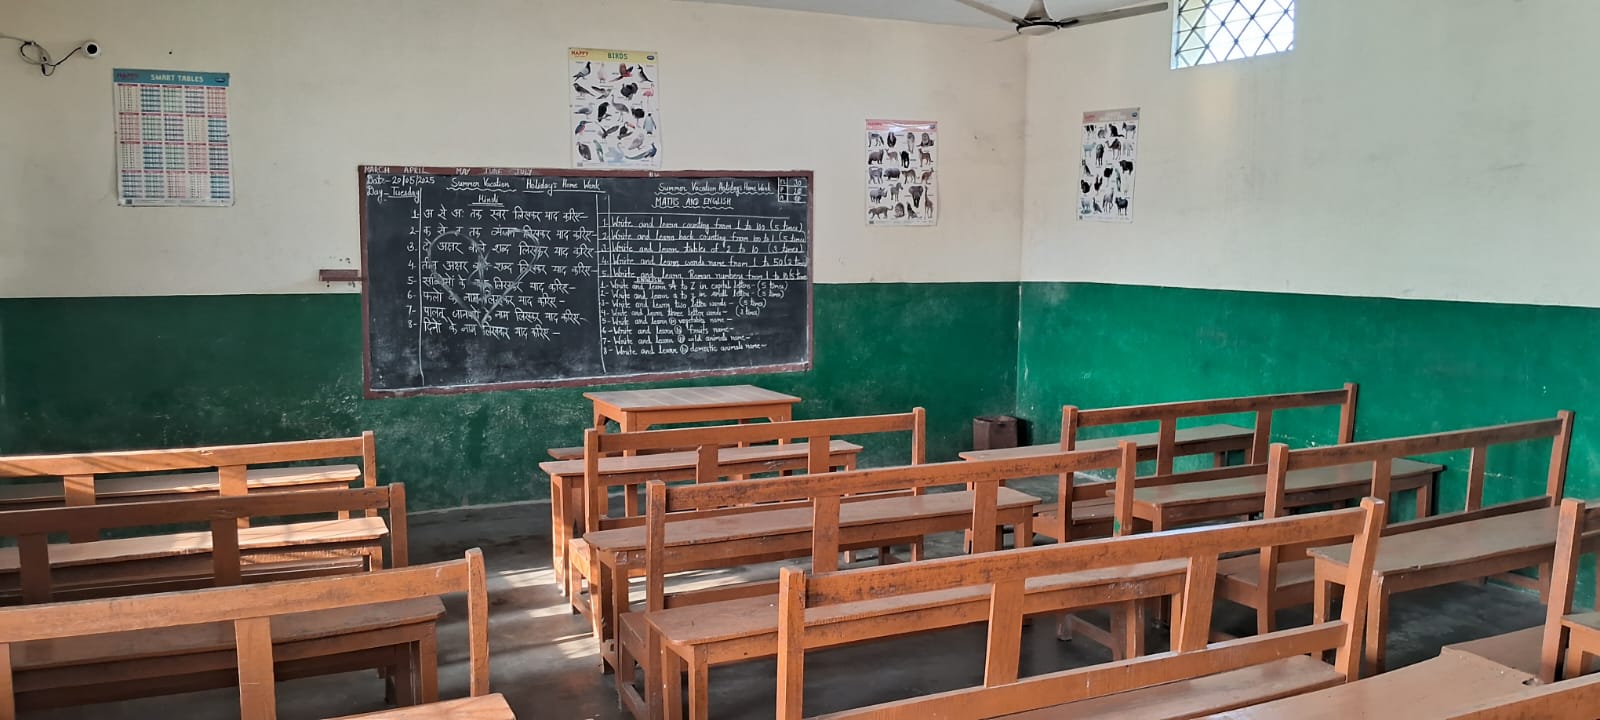 SMART TABLES
HAPPY
BIRDS
MARCH APRIL MAY JUNE JULY
Dat:- 20/05/2025
Day - Tuesday
Summer Vacation Holidays Home Work
Hindi
1- अ से अः तक स्वर लिखकर याद करिए-
2- क से ज्ञ तक व्यंजन लिखकर याद करिए-
3- दो अक्षर वाले शब्द लिखकर याद करिए-
4- तीन अक्षर वाले शब्द लिखकर याद करिए-
5- सब्जियों के नाम लिखकर याद करिए-
6- फलों के नाम लिखकर याद करिए-
7- पालतू जानवरों के नाम लिखकर याद करिए-
8- दिनों के नाम लिखकर याद करिए-
Summer Vacation Holidays Home Work
MATHS AND ENGLISH
1- Write and learn counting from 1 to 100 (5 times)
2- Write and learn back counting from 100 to 1 (5 times)
3- Write and learn tables of 2 to 10 (3 times)
4- Write and learn words name from 1 to 50 (2 times)
5- Write and learn Roman numbers from 1 to 10 (5 times)
ENGLISH
1- Write and learn A to Z in capital letters - (5 times)
2- Write and learn a to z in small letters - (5 times)
3- Write and learn two letter words - (5 times)
4- Write and learn three letter words - (3 times)
5- Write and learn 10 vegetables name -
6- Write and learn 10 fruits name -
7- Write and learn 10 wild animals name -
8- Write and learn 10 domestic animals name -